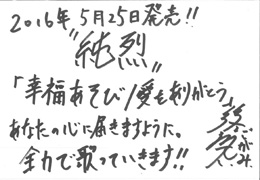 2016年 5月25日発売!!
"純烈"
「幸福あそび/愛をありがとう」
あなたの心に届きますように。
全力で歌っていきます!!